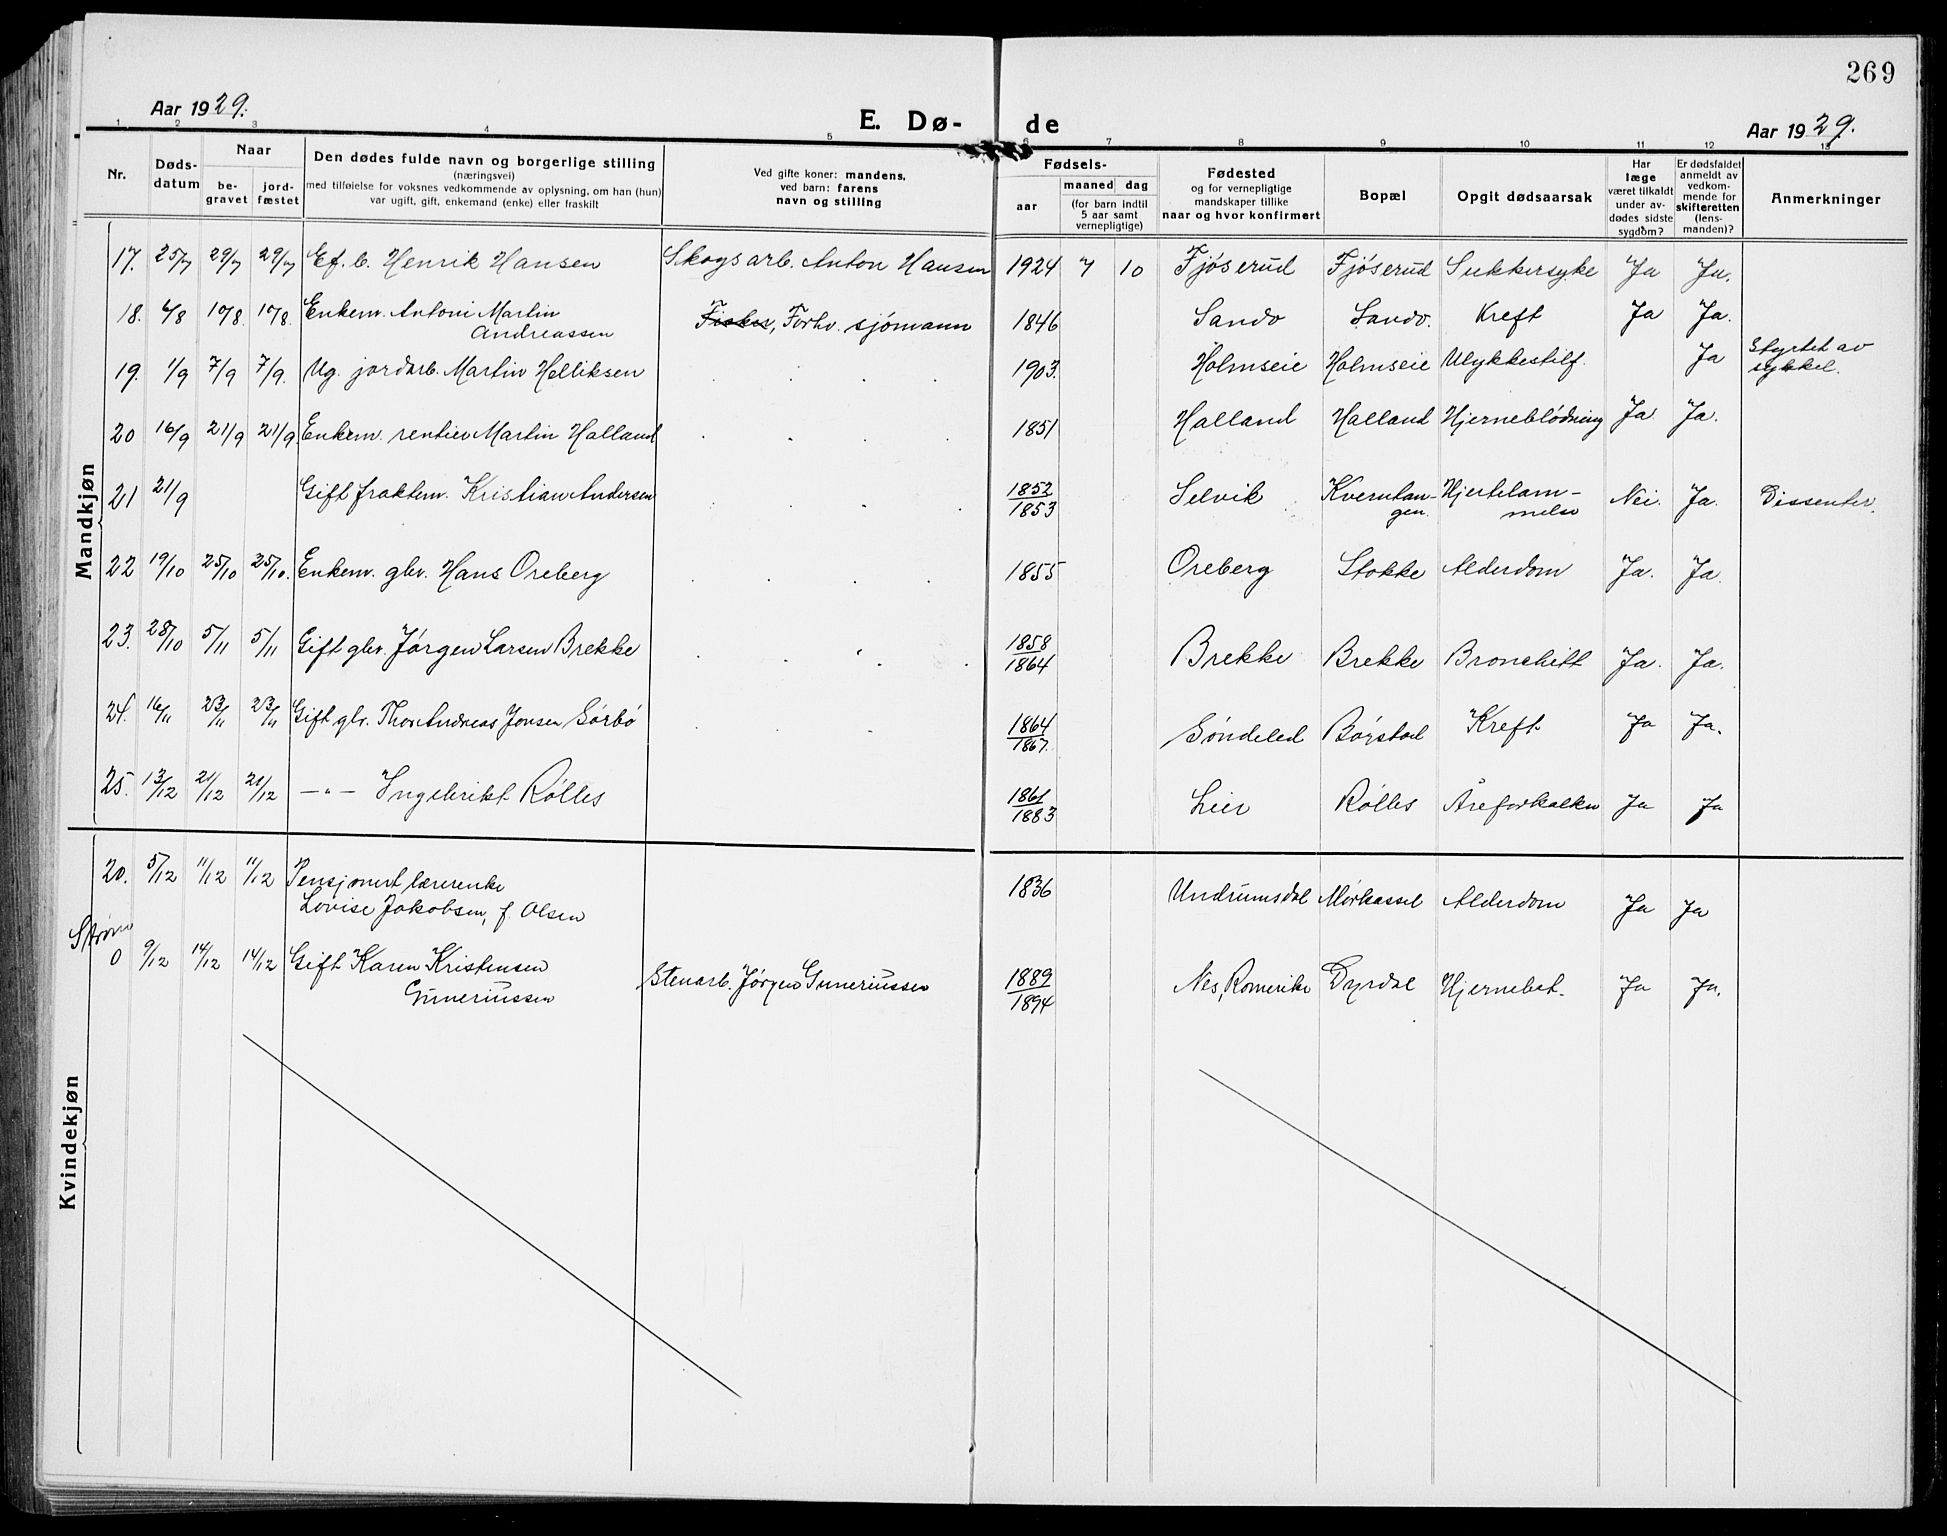 269
Aar 1929. E. Dø- de Aar 1929.
1 2 3 4 5 6 7 8 9 10 11 12 13
Nr. Døds-datum Naar be-gravet jord-fæstet Den dødes fulde navn og borgerlige stilling (næringsvei) med tilføielse for voksnes vedkommende av oplysning, om han (hun) var ugift, gift, enkemand (enke) eller fraskilt Ved gifte koner: mandens, ved barn: farens navn og stilling Fødsels- aar maaned dag (for barn indtil 5 aar samt vernepligtige) Fødested og for vernepligtige mandskaper tillike naar og hvor konfirmert Bopæl Opgit dødsaarsak Har læge været tilkaldt under av-dødes sidste sygdom? Er dødsfaldet anmeldt av vedkom-mende for skifteretten (lens-manden)? Anmerkninger
Mandkjøn
17. 25/7 29/7 29/7 Ef. b. Henrik Hansen Skogsarb. Anton Hansen 1924 7 10 Fjøserud Fjøserud Sukkersyke Ja Ja.
18. 4/8 10/8 10/8. Enkem. Antoni Martin Andreassen Fisker, Forhv. sjømann 1846 Sando Sando. Kreft Ja Ja.
19. 1/9 7/9 7/9. Ug. jordarb. Martin Helliksen 1903. Holmseie Holmseie Ulykkestilf. Ja Styrtet av sykkel.
20 16/9 21/9 21/9. Enkem. rentier Martin Halland 1851 Halland Halland Hjerneblødning Ja Ja.
21 21/9 Gift fraktem. Kristian Andersen 1852/1853 Selvik Kverntangen Hjertelammelse Nei. Ja. Dissenter.
22 19/10 25/10 25/10. Enkem. gbr. Hans Oreberg 1855 Oreberg Stokke Alderdom Ja. Ja.
23. 28/10 5/11 5/11 Gift gbr. Jørgen Larsen Brekke 1858/1864 Brekke Brekke Bronchitt Ja. Ja.
24. 16/11 23/11 23/11 Gift gbr. Thor Andreas Jonsen Sørbø 1864/1867. Søndeled Børstad Kreft. Ja Ja.
25. 13/12 21/12 21/12 — " — Ingebrikt Rølles 1861/1883 Lier Rølles Åreforkalkn Ja Ja
Kvindekjøn
20. 5/12 11/12 11/12 Pensjonert lærerenke Lovise Jakobsen, f. Olsen 1836 Undrumsdal Mørkassel Alderdom Ja Ja
Strøm
0 9/12 14/12 14/12 Gift Karen Kristensen Guneriussen Stenarb. Jørgen Guneriussen 1889/1894 Nes, Romerike Dyrdal Hjernebet. Ja Ja.